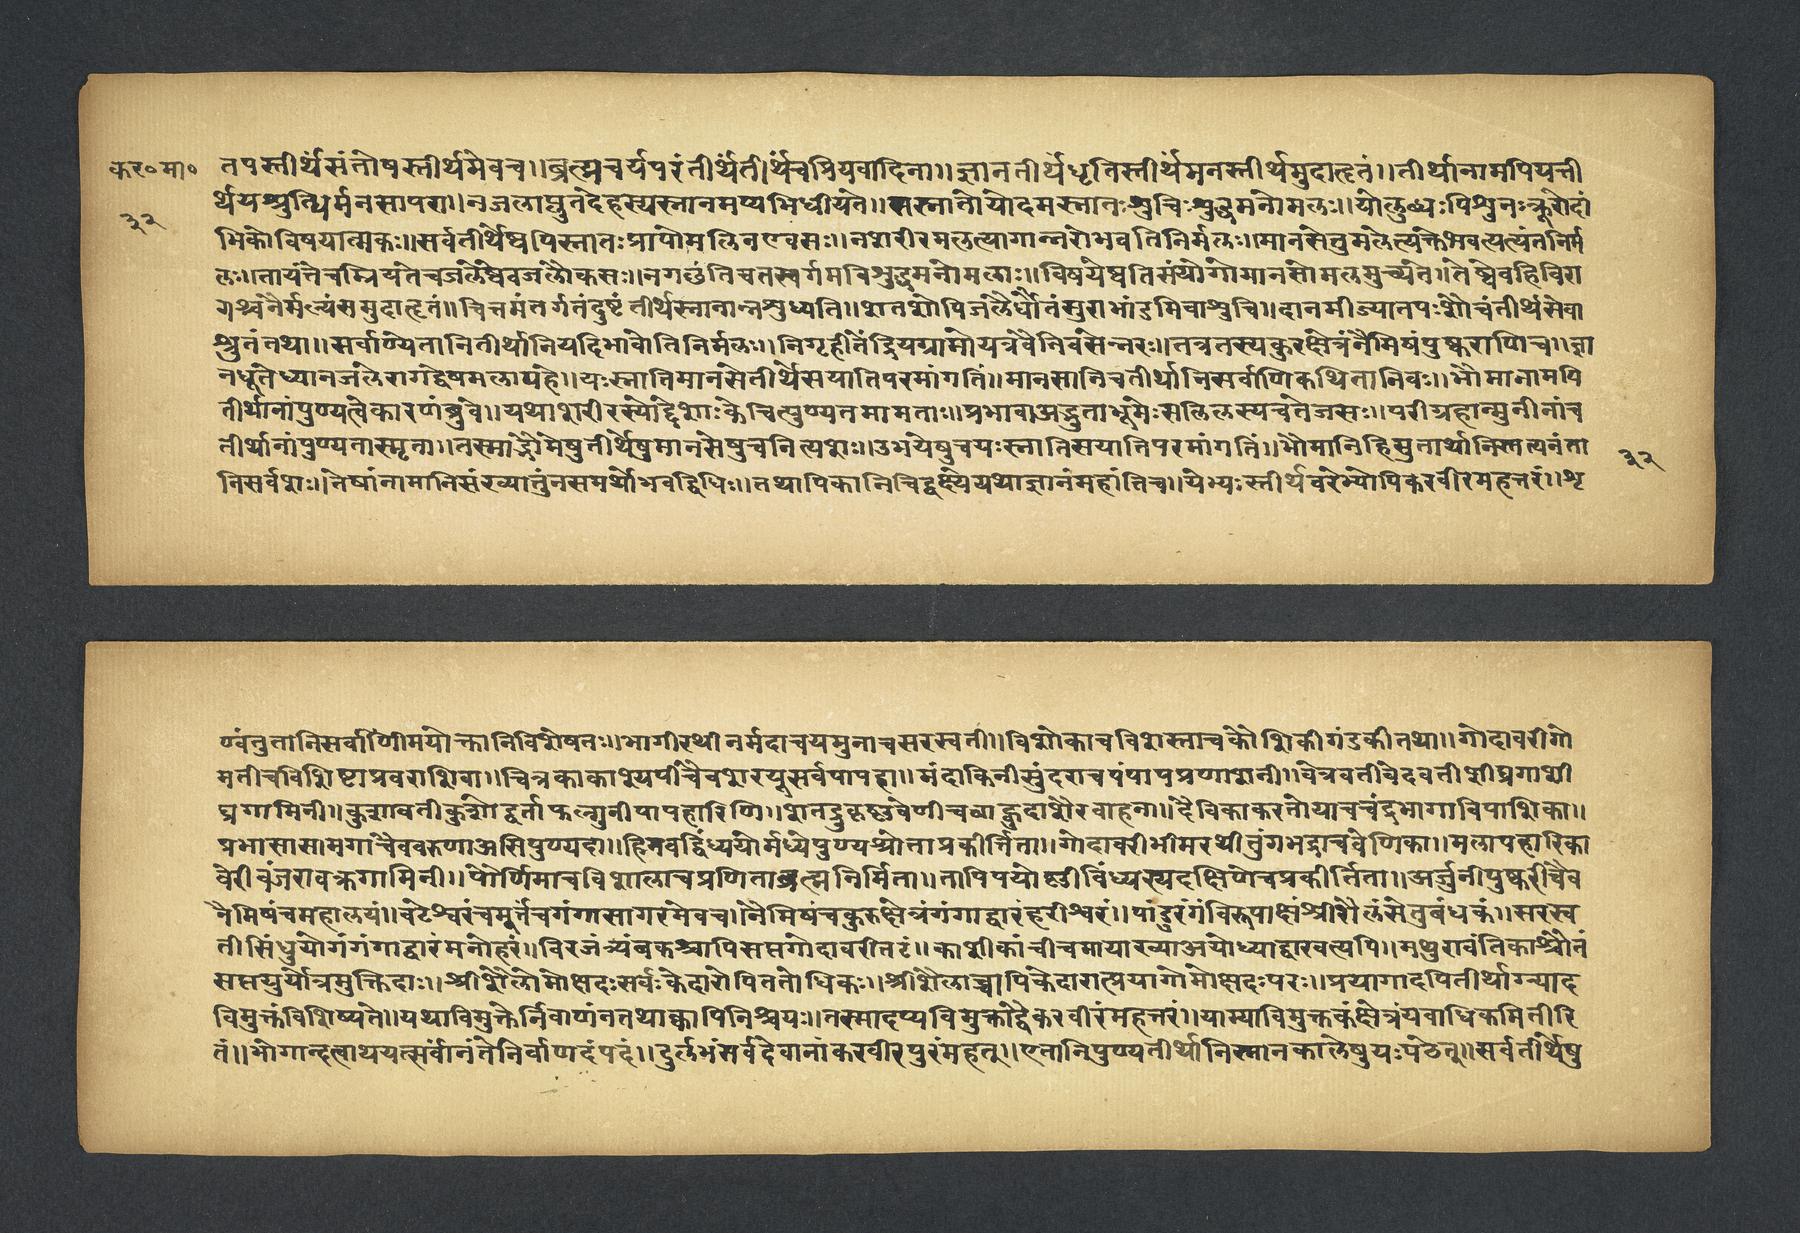 कर०मा०
३२
तपस्तीर्थसंतोषस्तीर्थमेवच।।ब्रह्मचर्यपरंतीर्थंतीर्थंचप्रियवादिता।।ज्ञानतीर्थंधृतिस्तीर्थंमनस्तीर्थमुदाहृतं।।तीर्थानामपियत्ती
र्थयश्शुद्धिर्मनसापरा।।नजलाप्लुतदेहस्यस्नानमप्यभिधीयते।।सस्नातोयोदमस्नातःशुचिःशुद्धमनोमलः।।योलुब्धःपिशुनःक्रूरोदां
भिकोविषयात्मकः।।सर्वतीर्थेष्वपिस्नातःपापोमलिनएवसः।।नशरीरमलत्यागान्नरोभवतिनिर्मलः।।मानसेतुमलेत्यक्तेभवत्यत्यंतनिर्म
लः।।जायंतेचम्रियंतेचजलेष्वेवजलौकसः।।नगछंतिचतस्वर्गमविशुद्धमनोमलाः।।विषयेष्वतिसंयोगोमानसोमलमुच्यते।।तेष्वेवहिविरा
गश्चनैर्मल्यंसमुदाहृतं।।चित्तमंतर्गतंदुष्टंतीर्थस्नानान्नशुध्यति।।शतशोपिजलैर्धौतंसुराभांडमिवाशुचि।।दानमीज्यातपःशौचंतीर्थसेवा
श्रुतंतथा।।सर्वाण्येतानितीर्थानियदिभावोतिनिर्मलः।।निगृहीतेंद्रियग्रामोयत्रवैनिवसेन्नरः।।तत्रतस्यकुरक्षेत्रंनैमिषंपुष्कराणिच।।ज्ञा
नधूतेध्यानजलेरागद्वेषमलापहे।।यःस्नातिमानसेतीर्थेसयातिपरमांगतिं।।मानसानिचतीर्थानिसर्वाणिकथितानिवः।।भौमानामपि
तीर्थानांपुण्यत्वेकारणंब्रुवे।।यथाशरीरस्योद्देशाःकेचित्पुण्यतमामताः।।प्रभावाअद्भुताभूमेःसलिलस्यचतेजसः।।परीग्रहान्मुनीनांच
तीर्थानांपुण्यतास्मृता।।तस्माद्भौमेषुतीर्थेषुमानसेषुचनित्यशः।।उभयेषुचयःस्नातिसयातिपरमांगतिं।।भौमानिहिसुतार्थानिसत्यनंता
निसर्वशः।।तेषांनामानिसंख्यातुंनसमर्थोभवद्विधिः।।तथापिकानिचिद्वक्ष्येयथाज्ञानंमहांतिच।।येभ्यःस्तीर्थवरेभ्योपिकरवीरमहत्तरं।।शृ
३२
ण्वंतुतानिसर्वाणिमयोक्तानिविशेषतः।।भागीरथीनर्मदाचयमुनाचसरस्वती।।विशोकाचविशस्ताचकौशिकीगंडकीतथा।।गोदावरीगो
मतीचविशिष्टाप्रवराशिवा।।चित्रकाकाश्यपींचैवशरयूसर्वपापहा।।मंदाकिनीसुंदराचपंपापप्रणाशनी।।वेत्रवतीवेदवतीशीघ्रगाशी
घ्रगामिनी।।कुशावतीकुशोद्वर्ताफल्गुनीपापहारिणि।।शतद्रुकृष्णवेणीचबाहुदाशैरवाहना।।दैविकाकरतोयाचचंद्रभागाविपाशिका।।
प्रभासासामगाचैववरुणाअसिपुण्यदा।।हिमवद्विंध्ययोर्मध्येपुण्यश्योताप्रकीर्तिता।।गोदावरीभीमरथीतुंगभद्राचवेणिका।।मलापहारिका
वेरीवंजरावक्रगामिनी।।पौर्णिमाचविशालाचप्रणिताब्रह्मनिर्मिता।।तापिपयोष्णीविंध्यस्यदक्षिणेचप्रकीर्तिता।।अर्जुनीपुष्करीचैव
नैमिषंचमहालयं।।वटेश्वरंचमूर्त्तंचगंगासागरमेवच।।नैमिषंचकुरुक्षेत्रंगंगाद्वारंहरीश्वरं।।पांडुरंगंविरूपाक्षंश्रीशैलंसेतुबंधकं।।सरस्व
तीसिंधुयोगंगंगाद्वारंमनोहरं।।विरजंत्र्यंबकश्चापिसप्तगोदावरीतटं।।काशीकांचीचमायाख्याअयोध्याद्वारवत्यपि।।मथुरावंतिकाश्चैतं
सप्तपुर्योत्रमुक्तिदाः।।श्रीशैलोमोक्षदःसर्वःकेदारोपिततोधिकः।।श्रीशैलाच्चापिकेदारात्प्रयागोमोक्षदःपरः।।प्रयागादपितीर्थाग्न्याद
विमुक्तंविशिष्यते।।यथाविमुक्तेर्निवाणंनतथाक्वापिनिश्चयः।।तस्मादप्यविमुक्ताद्वैकरवीरंमहत्तरं।।याम्याविमुक्तकंक्षेत्रंयवाधिकमितीरि
तं।।भोगान्दत्वाथयत्सर्वानंतेनिर्वाणदंपदं।।दुर्लभंसर्वदेवानांकरवीरपुरंमहत्।।एतानिपुण्यतीर्थानिस्नानकालेषुयःपठेत्।।सर्वतीर्थेषु